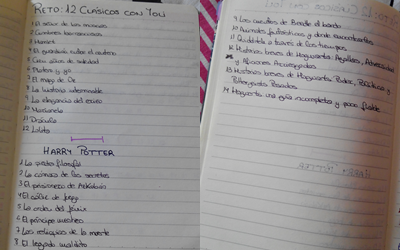 RETO: 12 CLÁSICOS CON YOU
1 El señor de las moscas
2 Cumbres borrascosas
3 Hamlet
4 El guardián entre el centeno
5 Cien años de soledad
6 Platero y yo
7 El mago de Oz
8 La historia interminable
9 La elegancia del erizo
10
11 Drácula
12 Lolita
HARRY POTTER
1 La piedra filosofal
2 La cámara de los secretos
3 El prisionero de Azkabán
4 El cáliz de fuego
5 La orden del fénix
6 El príncipe mestizo
7 Las reliquias de la muerte
8 El legado maldito
9 Los cuentos de Beedle el bardo
10 Animales fantásticos y donde encontrarlos
11 Quidditch a través de los tiempos
12 Historias breves de Hogwarts: Agallas, Adversidad
y Aficiones Arriesgadas
13 Historias breves de Hogwarts: Poder, Política y
Poltergeists Pesados
14 Hogwarts una guía incompleta y poco fiable